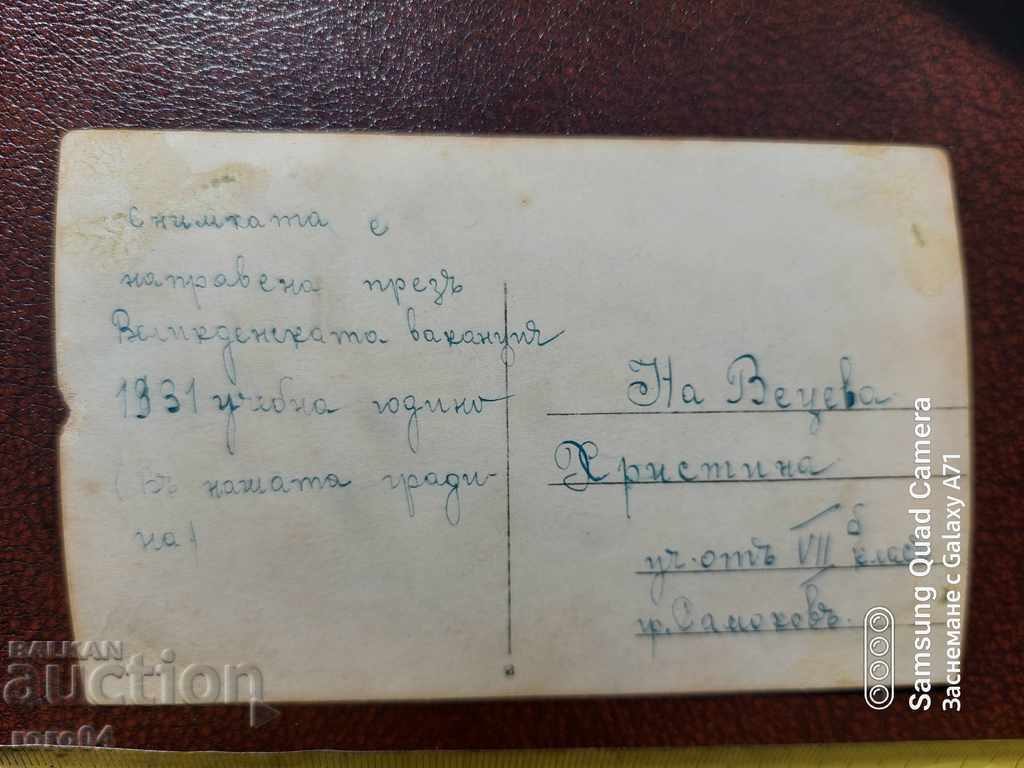 Снимката е
направена презъ
Великденската ваканция
1931 учебна година
(Въ нашата гради-
на)
На Вецева
Христина
уч. отъ VII б класъ
гр. Самоковъ.
Samsung Quad Camera
Заснемане с Galaxy A71
BALKAN
auction
roro04